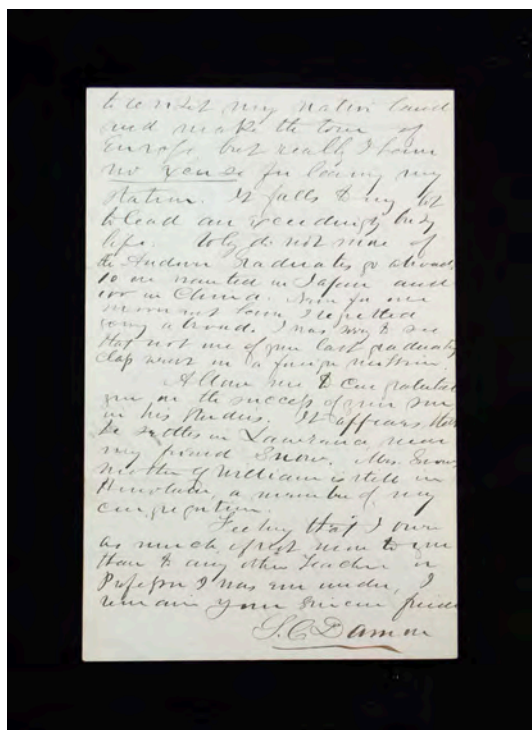 to revisit my native land
and make the tour of
Europe but really I have
no excuse for leaving my
station. It falls to my lot
to lead an exceedingly busy
life. Why do not more of
the Andover graduates go abroad.
10 are wanted in Japan and
100 in China. Never for one
moment have I regretted
going abroad. I was sorry to see
that not one of your last graduating
class went on a foreign mission.
Allow me to congratulate
you on the success of your son
in his studies. It appears that
he settles in Lawrence near
my friend Snow. Mrs. Snow,
mother of William is still in
Honolulu, a member of my
congregation.
Feeling that I owe
as much if not more to you
than to any other Teacher or
Professor I was ever under, I
remain your sincere friend
S. C. Damon